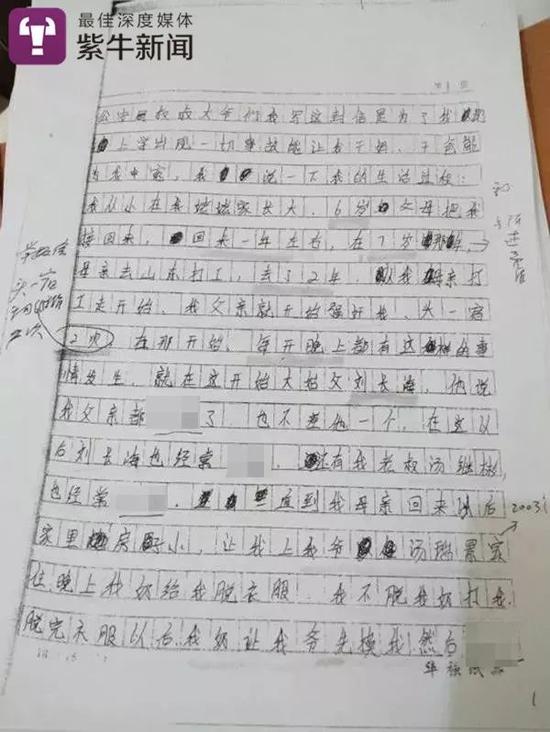 最佳深度媒体
紫牛新闻
第1页
公安局叔叔大爷们我写这封信是为了我
上学出现一切事故能让我干妈、干爸能
为我申冤,我说一下我的生活过程:
我从小在我姥姥家长大,6岁父母把我
接回来,回来一年左右,在7岁那年,
母亲去山东打工,去了2年,从我母亲打
工走开始,我父亲就开始强奸我,头一宿
2次,在那开始,每天晚上都有这样的事
情发生,就在这开始大姑父刘长海,他说
我父亲都 了,也不差他一个,在这以
后刘长海也经常 ,还有我老叔汤继彬,
也经常 ,一直到我母亲回来以后
2003
家里房子小,让我上我爷汤瑞景家
住晚上我奶给我脱衣服,我不脱我奶打我,
脱完衣服以后我奶让我爷先 我然后
头一宿
2次
1